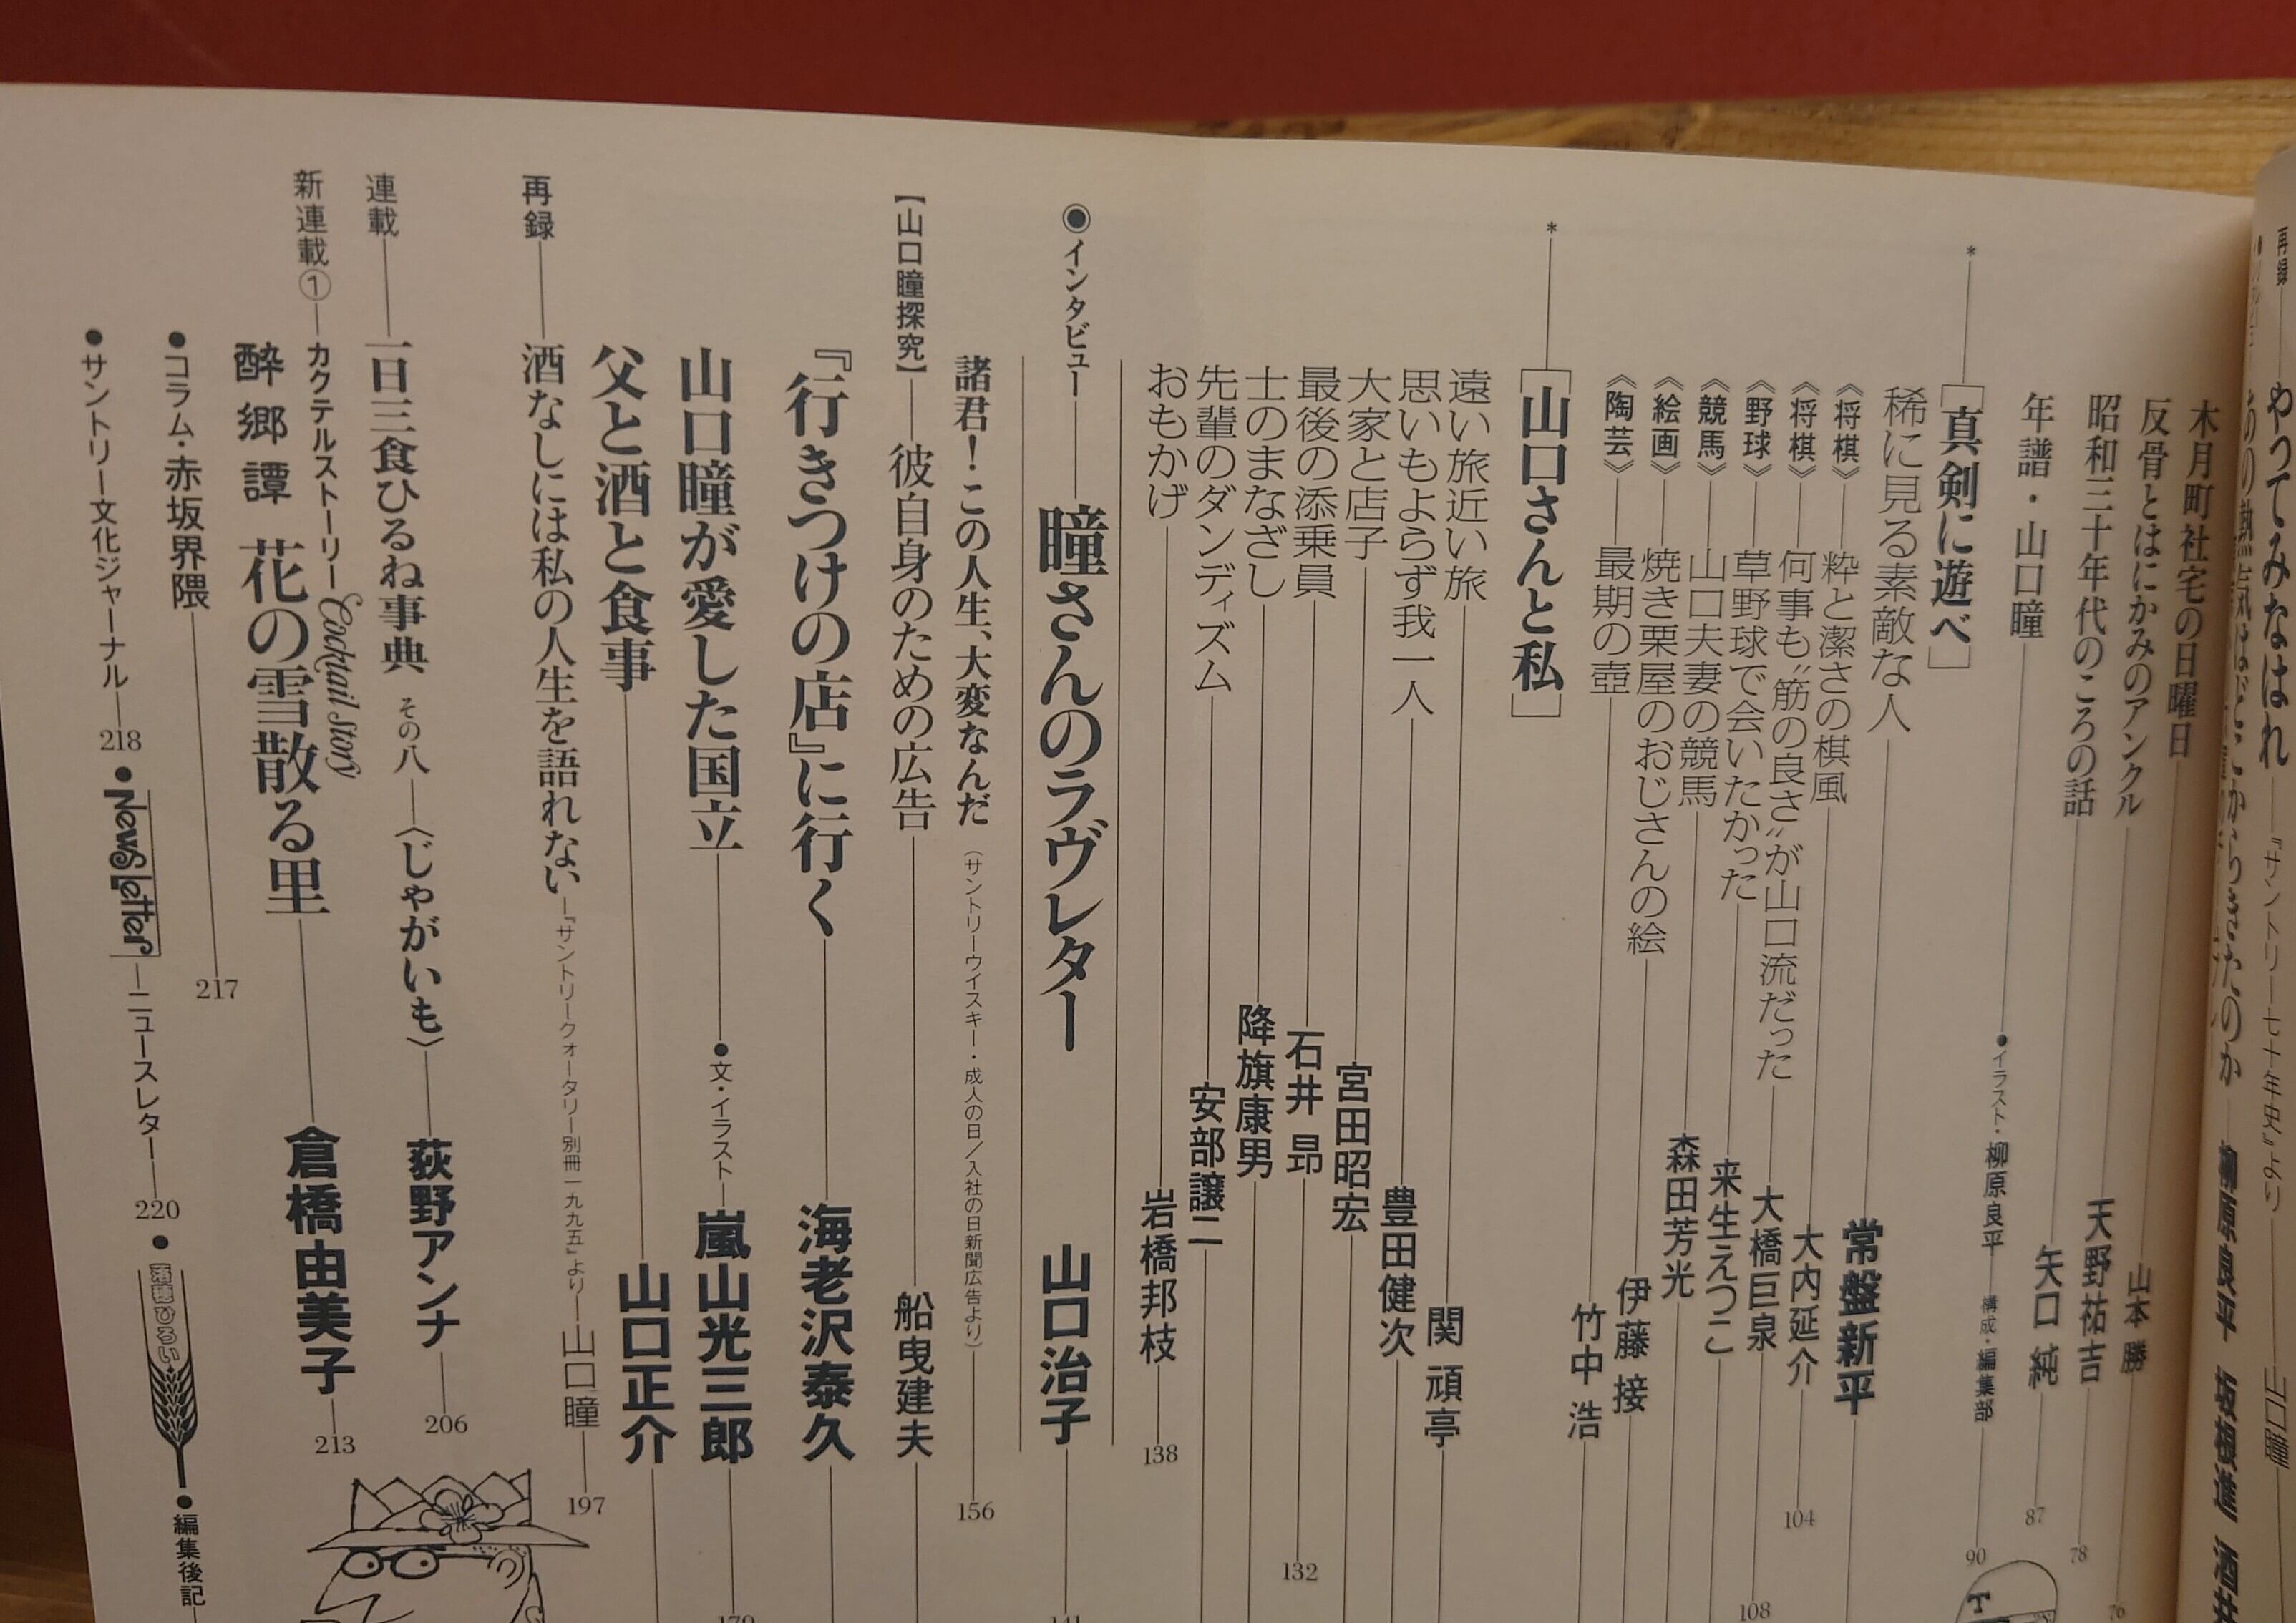 再録
やってみなはれ 『サントリー七十年史』より 山口瞳
柳原良平 坂根進
木月町社宅の日曜日 山本 勝 76
反骨とはにかみのアンクル 天野祐吉 78
昭和三十年代のころの話 矢口 純 87
年譜・山口瞳 ●イラスト・柳原良平 構成・編集部 90
*［真剣に遊べ］
稀に見る素敵な人 常盤新平
《将棋》 粋と潔さの棋風 大内延介 104
《将棋》 何事も〝筋の良さ〟が山口流だった 大橋巨泉 108
《野球》 草野球で会いたかった 来生えつこ
《競馬》 山口夫妻の競馬 森田芳光
《絵画》 焼き栗屋のおじさんの絵 伊藤 接
《陶芸》 最期の壺 竹中 浩
*［山口さんと私］
遠い旅近い旅 関 頑亭
思いもよらず我一人 豊田健次
大家と店子 宮田昭宏
最後の添乗員 石井 昂 132
士のまなざし 降旗康男
先輩のダンディズム 安部譲二
おもかげ 岩橋邦枝 138
◉インタビュー 瞳さんのラヴレター 山口治子 141
諸君！この人生、大変なんだ （サントリーウイスキー・成人の日／入社の日新聞広告より） 156
【山口瞳探究】 彼自身のための広告 船曳建夫
『行きつけの店』に行く 海老沢泰久
山口瞳が愛した国立 ●文・イラスト 嵐山光三郎 179
父と酒と食事 山口正介
再録 酒なしには私の人生を語れない 『サントリークォータリー別冊一九九五』より 山口瞳 197
連載 一日三食ひるね事典 その八 〈じゃがいも〉 荻野アンナ 206
新連載① カクテルストーリー Cocktail Story
酔郷譚 花の雪散る里 倉橋由美子 213
●コラム・赤坂界隈 217
●サントリー文化ジャーナル 218 ●NewsLetter ニュースレター 220 ●落穂ひろい ●編集後記